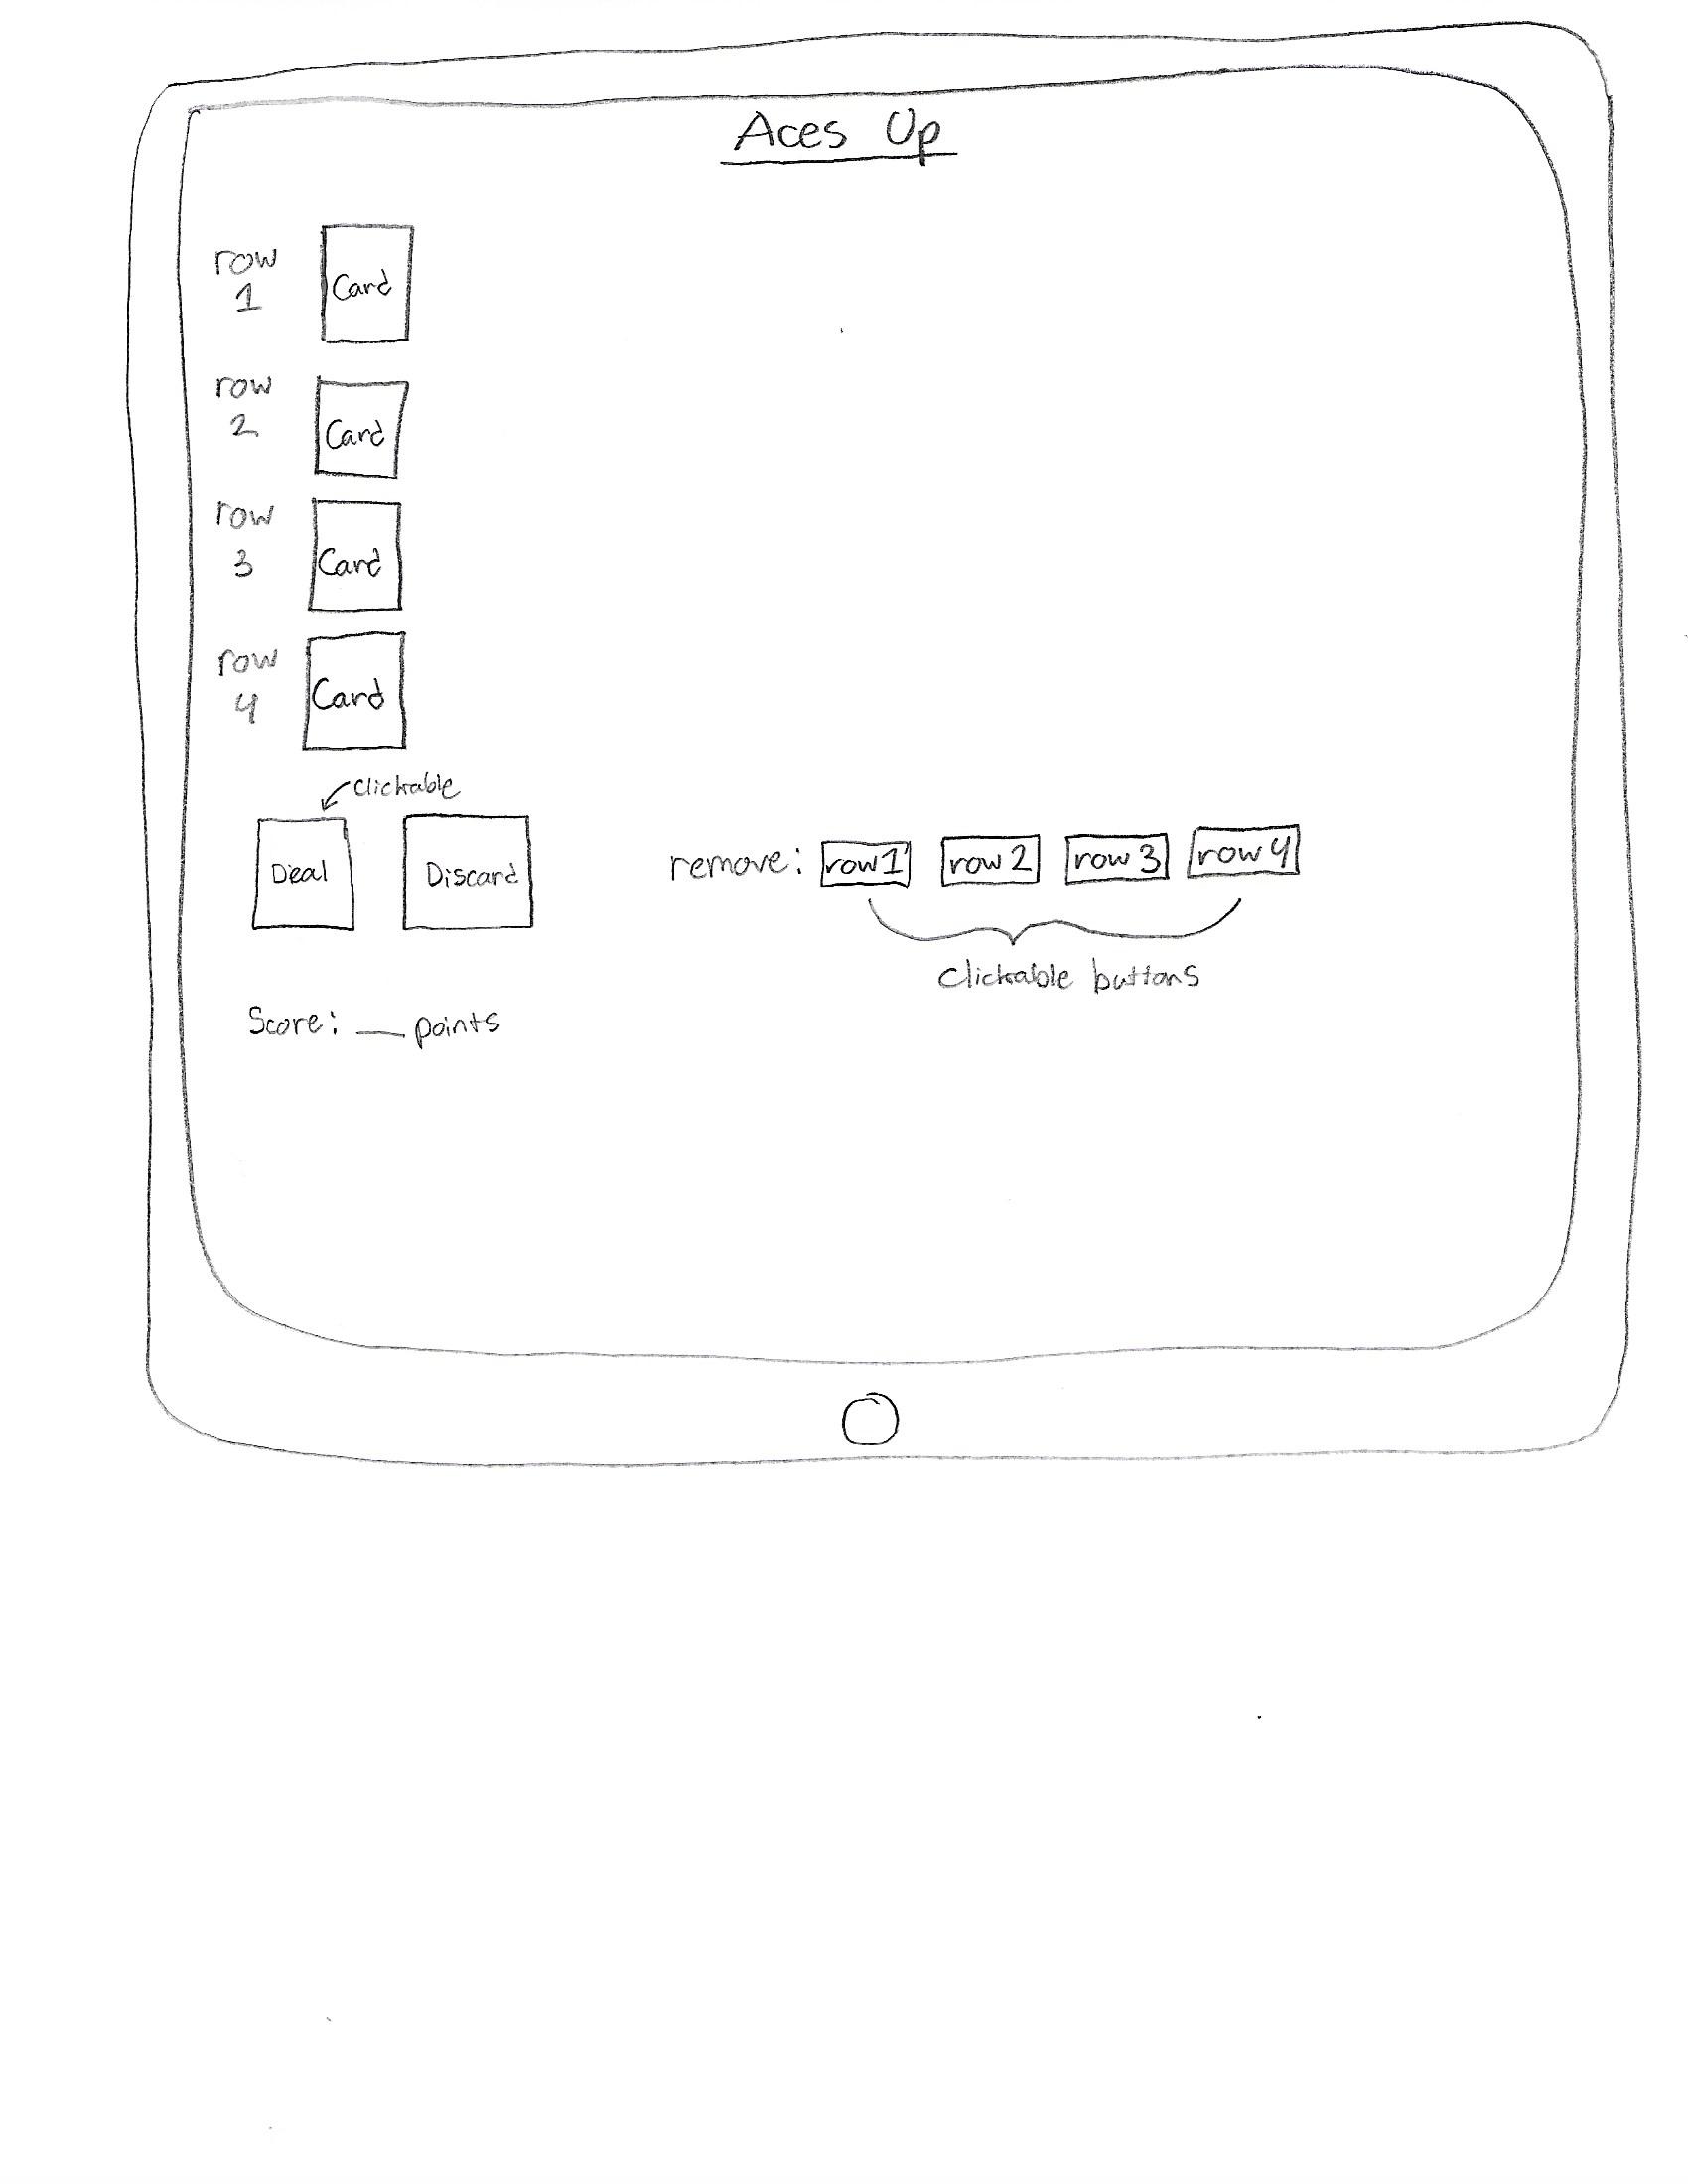 Aces Up
row
1
Card
row
2
Card
row
3
Card
row
4
Card
clickable
Deal
Discard
remove: row1 row2 row3 row4
clickable buttons
Score: __ points